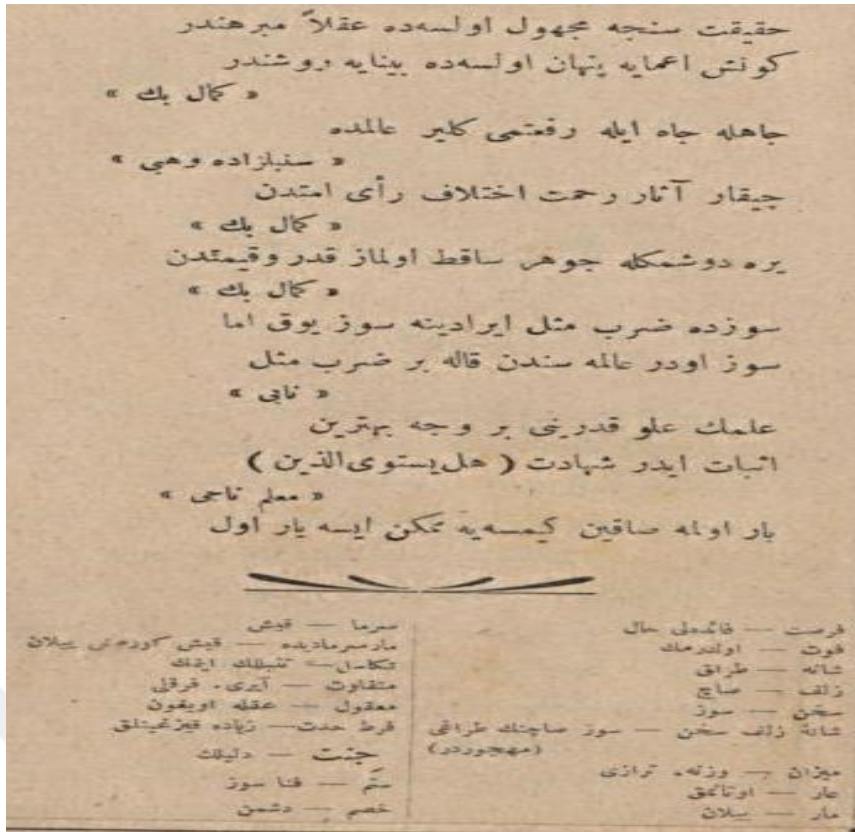 حقيقت سنجه مجهول اولسه‌ده عقلاً مبرهندر
كونش اعمايه پنهان اولسه‌ده بينايه روشندر
« كمال بك »
جاهله جاه ايله رفعتمى كلير عالمده
« سنبلزاده وهبى »
چيقار آثار رحمت اختلاف رأى امتدن
« كمال بك »
يره دوشمكله جوهر ساقط اولماز قدر وقيمتدن
« كمال بك »
سوزده ضرب مثل ايرادينه سوز يوق اما
سوز اودر عالمه سندن قاله بر ضرب مثل
« نابى »
علمك علو قدرينى بر وجه بهترين
اثبات ايدر شهادت ( هل‌يستوى‌الذين )
« معلم ناجى »
بار اولمه صاقين كيمسه‌يه ممكن ايسه يار اول
فرصت — فائده‌لى حال
فوت — اولدرمك
شانه — طراق
زلف — صاچ
سخن — سوز
شانهٔ زلف سخن — سوز صاچنك طراقى
(مهجوردر)
ميزان — وزنه، ترازى
عار — اوتانمق
مار — ييلان
سرما — قيش
مارسرماديده — قيش كورمش ييلان
تكاسل — تنبللك ايتمك
متفاوت — آيرى، فرقلى
معقول — عقله اويغون
فرط حدت — زياده قيزغينلق
جنت — دليلك
ستم — فنا سوز
خصم — دشمن